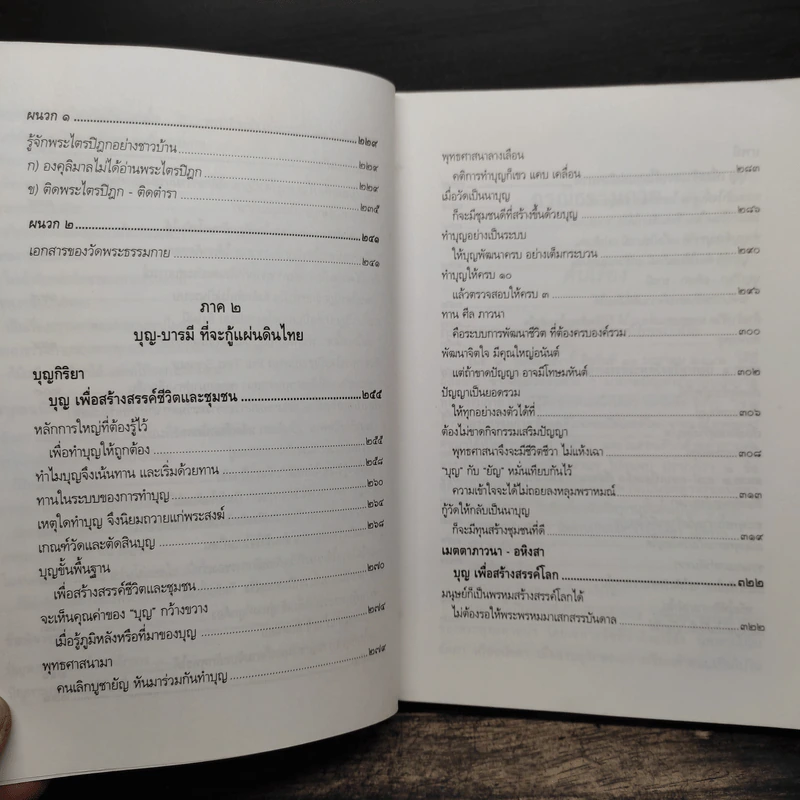 ผนวก ๑ ........ ๒๒๙
รู้จักพระไตรปิฎกอย่างชาวบ้าน ........ ๒๒๙
ก) องคุลิมาลไม่ได้อ่านพระไตรปิฎก ........ ๒๒๙
ข) ติดพระไตรปิฎก - ติดตำรา ........ ๒๓๕
ผนวก ๒ ........ ๒๔๑
เอกสารของวัดพระธรรมกาย ........ ๒๔๑
ภาค ๒
บุญ-บารมี ที่จะกู้แผ่นดินไทย
บุญกิริยา
บุญ เพื่อสร้างสรรค์ชีวิตและชุมชน ........ ๒๕๕
หลักการใหญ่ที่ต้องรู้ไว้
เพื่อทำบุญให้ถูกต้อง ........ ๒๕๕
ทำไมบุญจึงเน้นทาน และเริ่มด้วยทาน ........ ๒๕๘
ทานในระบบของการทำบุญ ........ ๒๖๐
เหตุใดทำบุญ จึงนิยมถวายแก่พระสงฆ์ ........ ๒๖๔
เกณฑ์วัดและตัดสินบุญ ........ ๒๖๘
บุญขั้นพื้นฐาน
เพื่อสร้างสรรค์ชีวิตและชุมชน ........ ๒๗๐
จะเห็นคุณค่าของ "บุญ" กว้างขวาง
เมื่อรู้ภูมิหลังหรือที่มาของบุญ ........ ๒๗๔
พุทธศาสนามา
คนเลิกบูชายัญ หันมาร่วมกันทำบุญ ........ ๒๗๙
พุทธศาสนาลางเลือน
คติการทำบุญก็เขว แคบ เคลื่อน ........ ๒๘๓
เมื่อวัดเป็นนาบุญ
ก็จะมีชุมชนดีที่สร้างขึ้นด้วยบุญ ........ ๒๘๖
ทำบุญอย่างเป็นระบบ
ให้บุญพัฒนาครบ อย่างเต็มกระบวน ........ ๒๙๐
ทำบุญให้ครบ ๑๐
แล้วตรวจสอบให้ครบ ๓ ........ ๒๙๖
ทาน ศีล ภาวนา
คือระบบการพัฒนาชีวิต ที่ต้องครบองค์รวม ........ ๓๐๐
พัฒนาจิตใจ มีคุณใหญ่อนันต์
แต่ถ้าขาดปัญญา อาจมีโทษมหันต์ ........ ๓๐๒
ปัญญาเป็นยอดรวม
ให้ทุกอย่างลงตัวได้ที่ ........ ๓๐๖
ต้องไม่ขาดกิจกรรมเสริมปัญญา
พุทธศาสนาจึงจะมีชีวิตชีวา ไม่แห้งเฉา ........ ๓๐๘
"บุญ" กับ "ยัญ" หมั่นเทียบกันไว้
ความเข้าใจจะได้ไม่ถอยลงหลุมพราหมณ์ ........ ๓๑๓
กู้วัดให้กลับเป็นนาบุญ
ก็จะมีทุนสร้างชุมชนที่ดี ........ ๓๑๙
เมตตาภาวนา - อหิงสา
บุญ เพื่อสร้างสรรค์โลก ........ ๓๒๒
มนุษย์ก็เป็นพรหมสร้างสรรค์โลกได้
ไม่ต้องรอให้พระพรหมมาเสกสรรบันดาล ........ ๓๒๒